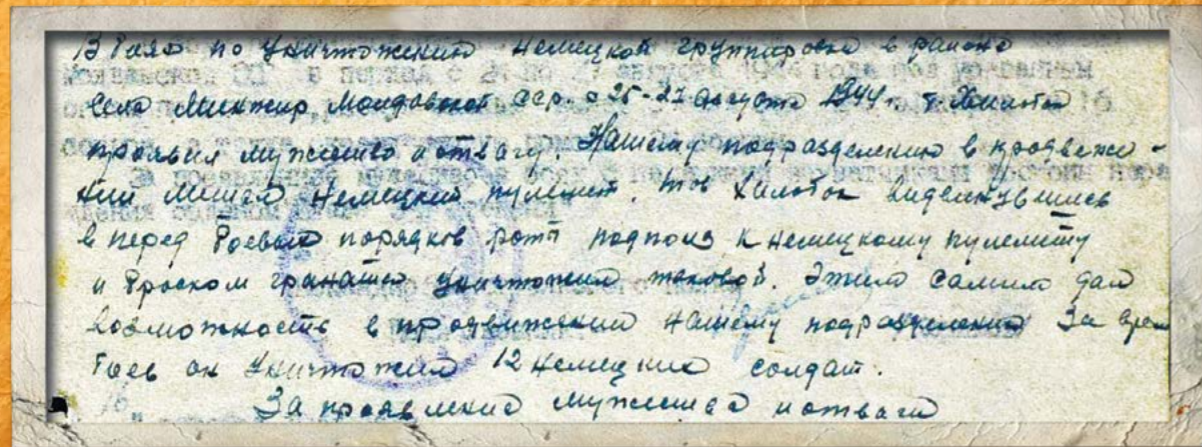 В боях по уничтожению немецкой группировки в районе
села Минжир, Молдавской ССР. с 25-27 августа 1944 г. т.
проявил мужество и отвагу. Нашему подразделению в продвеже-
нии мешал немецкий пулемет. тов
в перед боевых порядков рот подполз к немецкому пулемету
и броском гранаты уничтожил таковой. Этим самим дал
возможность в продвижении нашему подразделению За врем
боев он уничтожил 12 немецких солдат.
За проявление мужества и отваги